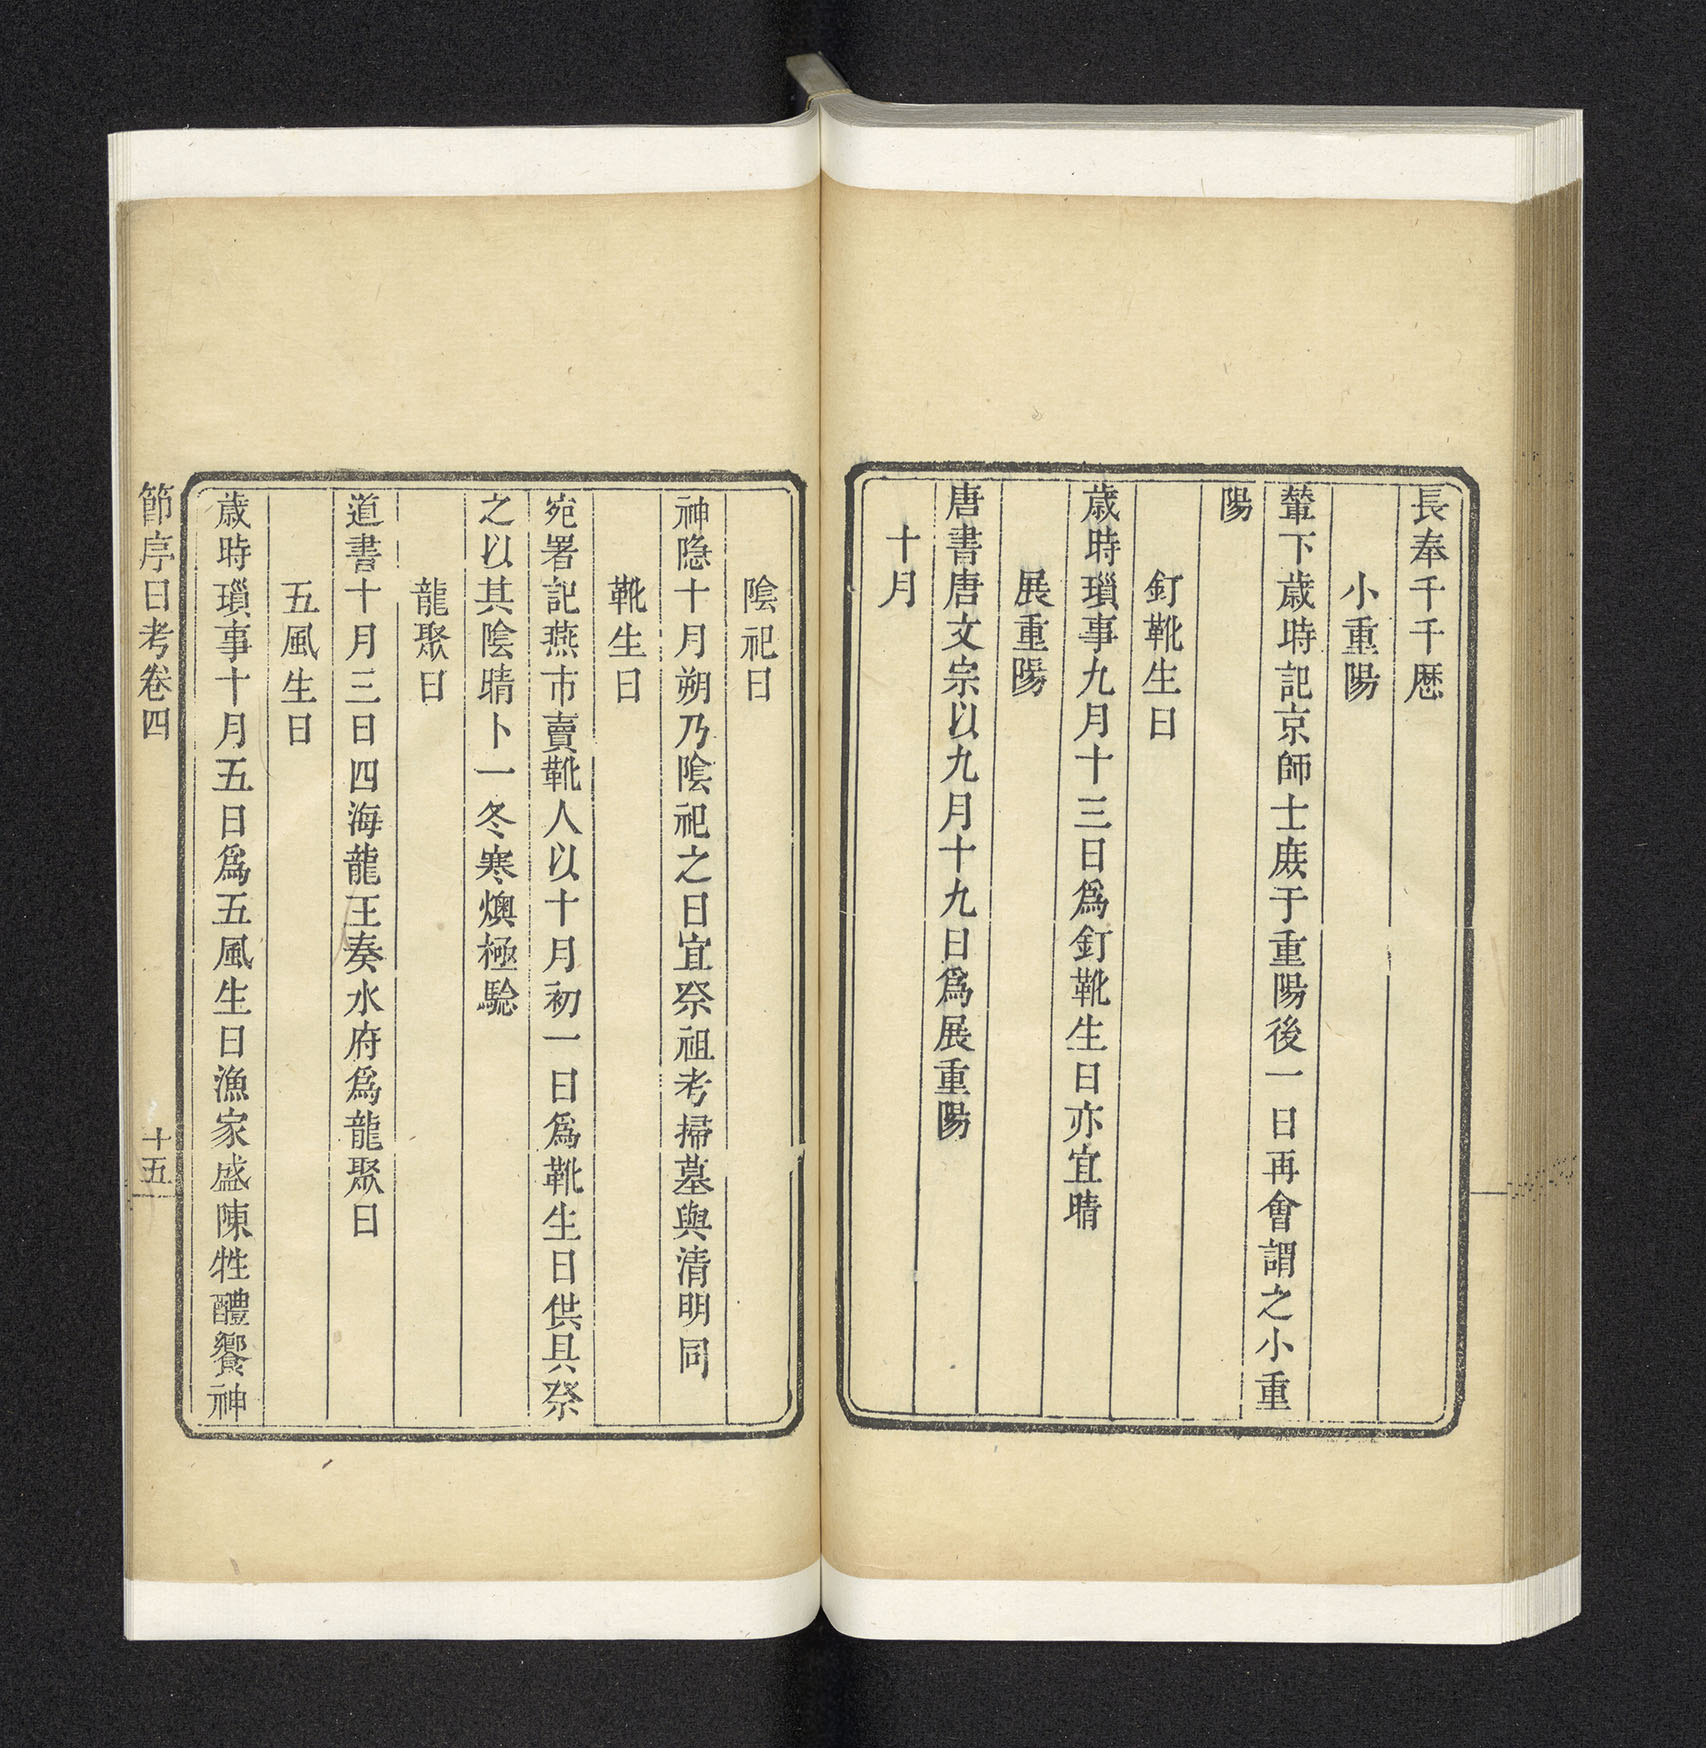 長奉千千歴
小重陽
輦下歲時記京師士庻于重陽後一日再會謂之小重
陽
釘靴生日
歲時瑣事九月十三日爲釘靴生日亦宜晴
展重陽
唐書唐文宗以九月十九日爲展重陽
十月
陰祀日
神隐十月朔乃陰祀之日宜祭祖考掃墓與清明同
靴生日
宛署記燕市賣靴人以十月初一日爲靴生日供具祭
之以其陰晴卜一冬寒燠極驗
龍聚日
道書十月三日四海龍王奏水府爲龍聚日
五風生日
歲時瑣事十月五日爲五風生日漁家盛陳牲醴饗神
節序日考卷四
十五